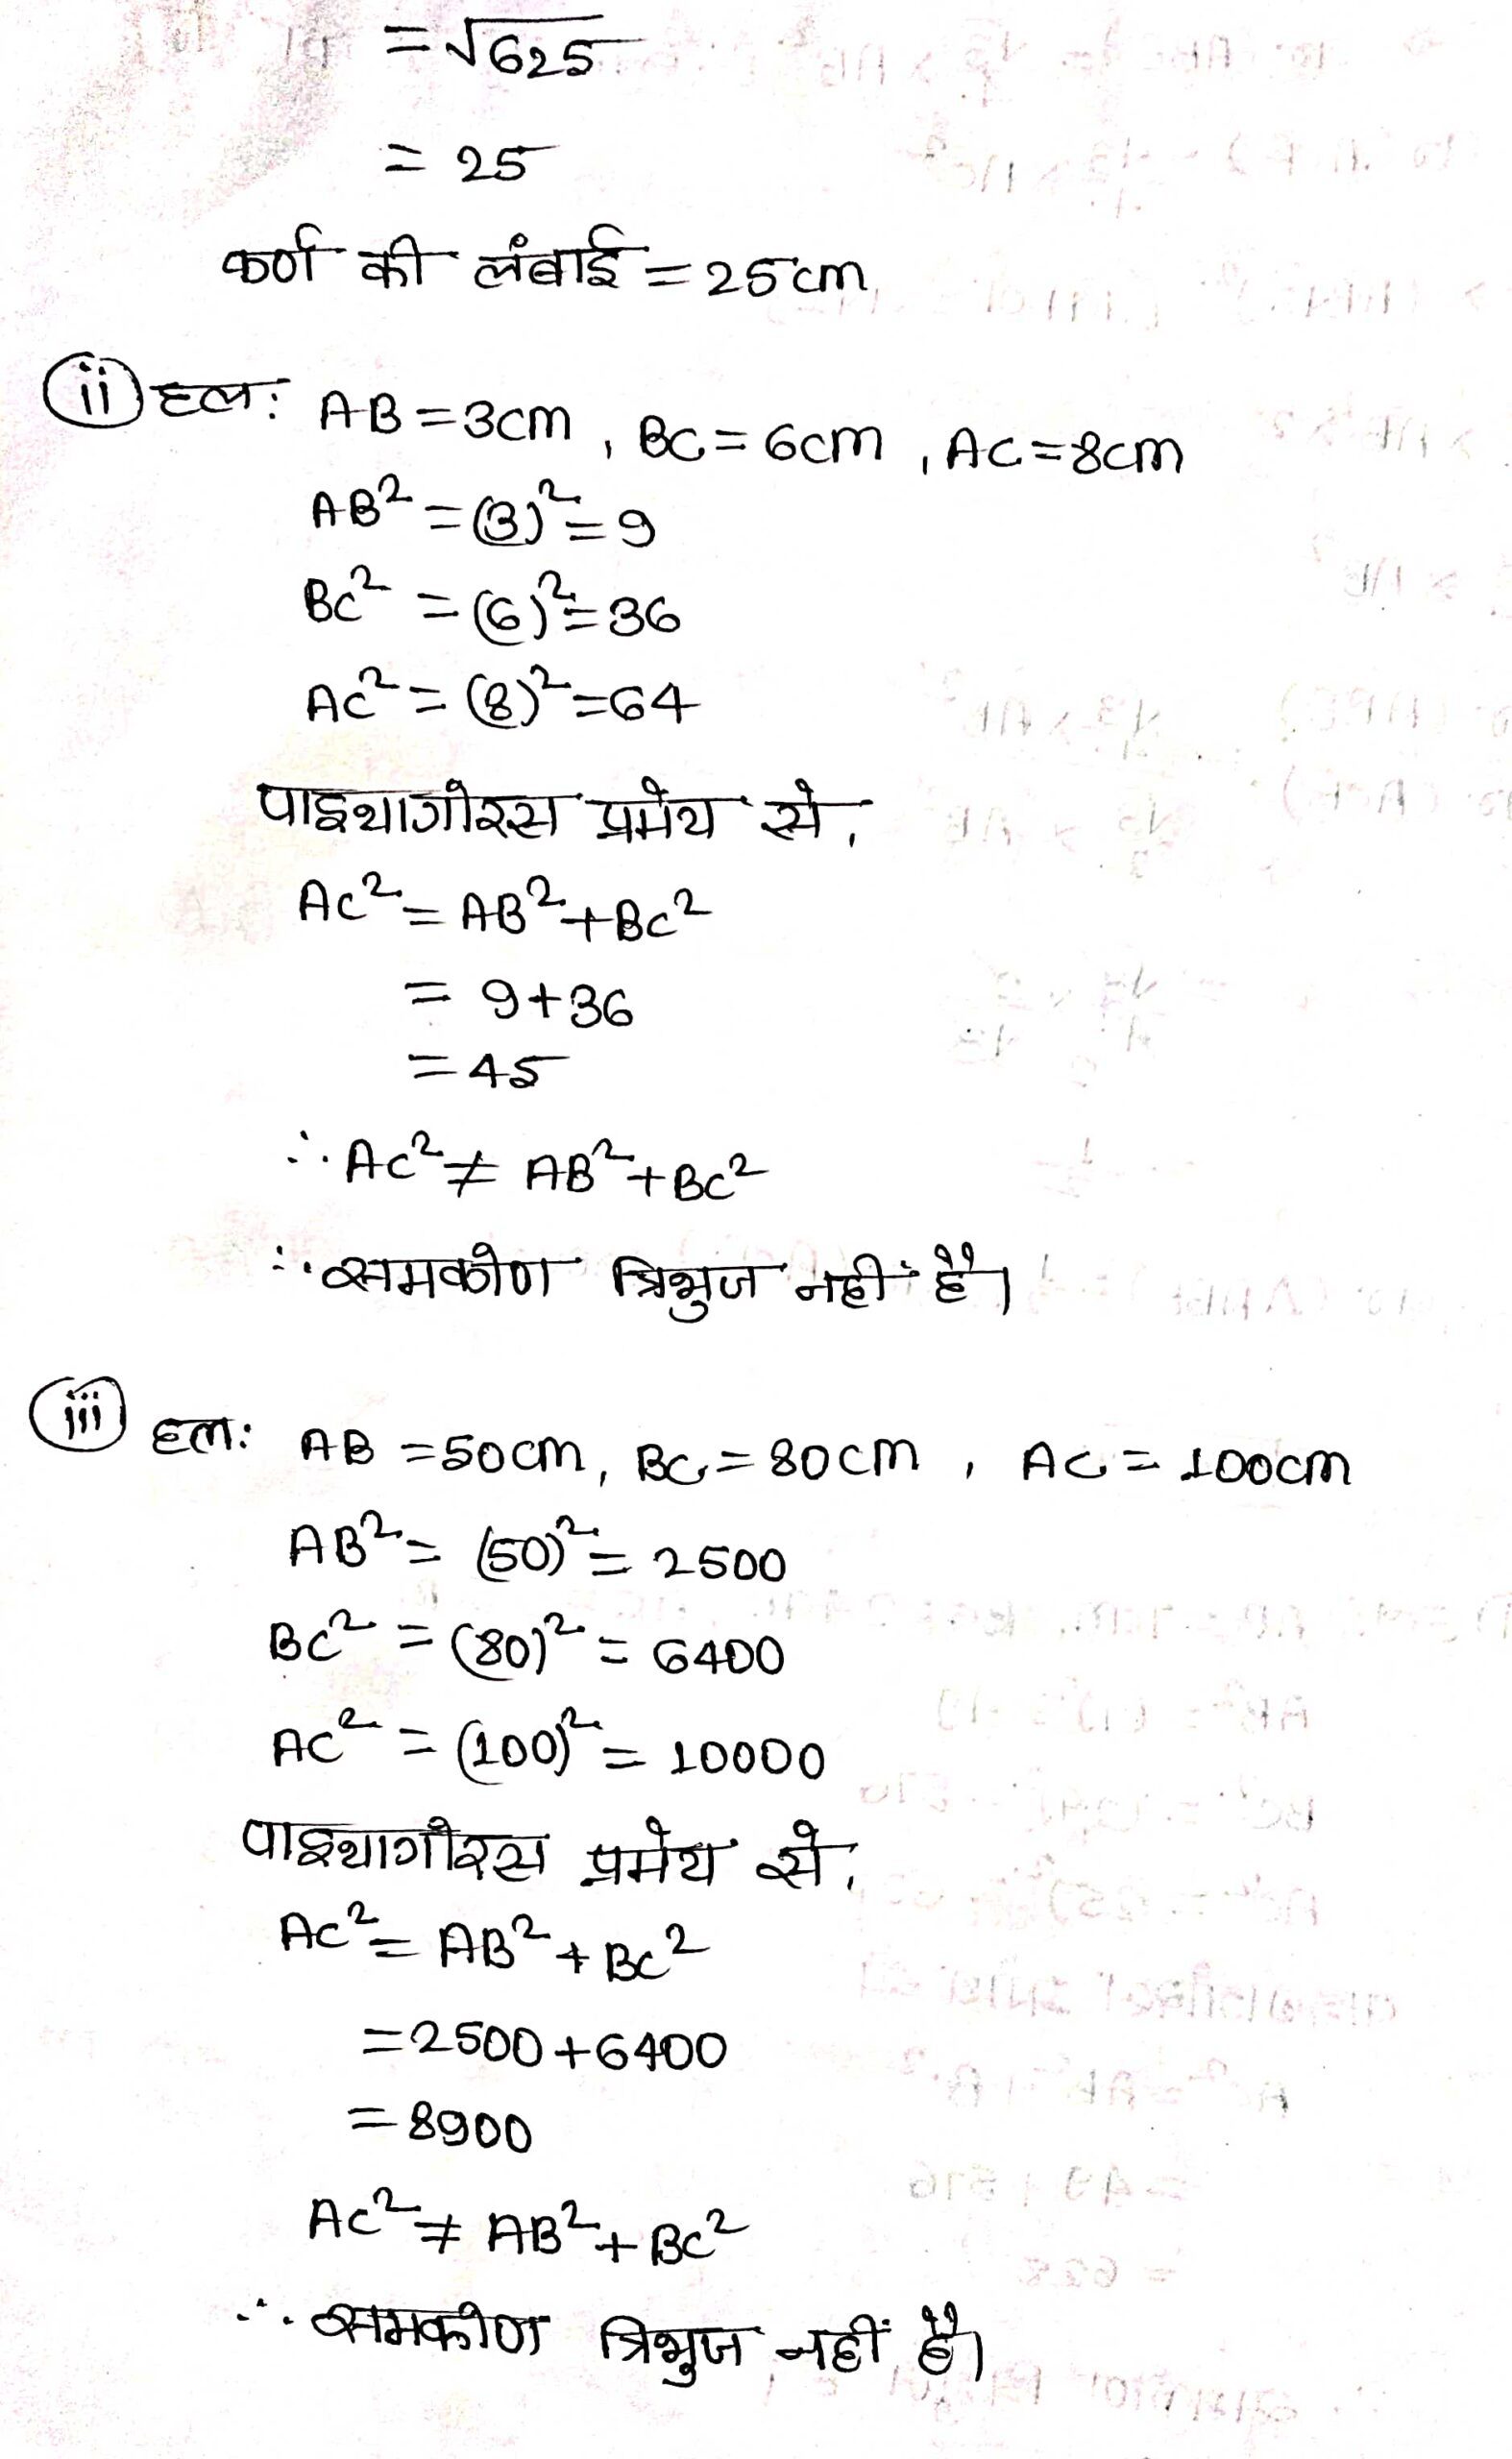 =√625
= 25
कर्ण की लंबाई = 25cm
(ii) हल: AB=3cm, BC=6cm, AC=8cm
AB²=(3)²=9
BC²=(6)²=36
AC²=(8)²=64
पाइथागोरस प्रमेय से,
AC²=AB²+BC²
= 9+36
=45
∴ AC²≠ AB²+BC²
∴ समकोण त्रिभुज नहीं है।
(iii) हल: AB =50cm, BC=80cm, AC= 100cm
AB²= (50)²= 2500
BC² = (80)² = 6400
AC² = (100)² = 10000
पाइथागोरस प्रमेय से,
AC²= AB²+BC²
=2500+6400
=8900
AC²≠ AB²+BC²
∴ समकोण त्रिभुज नहीं है।